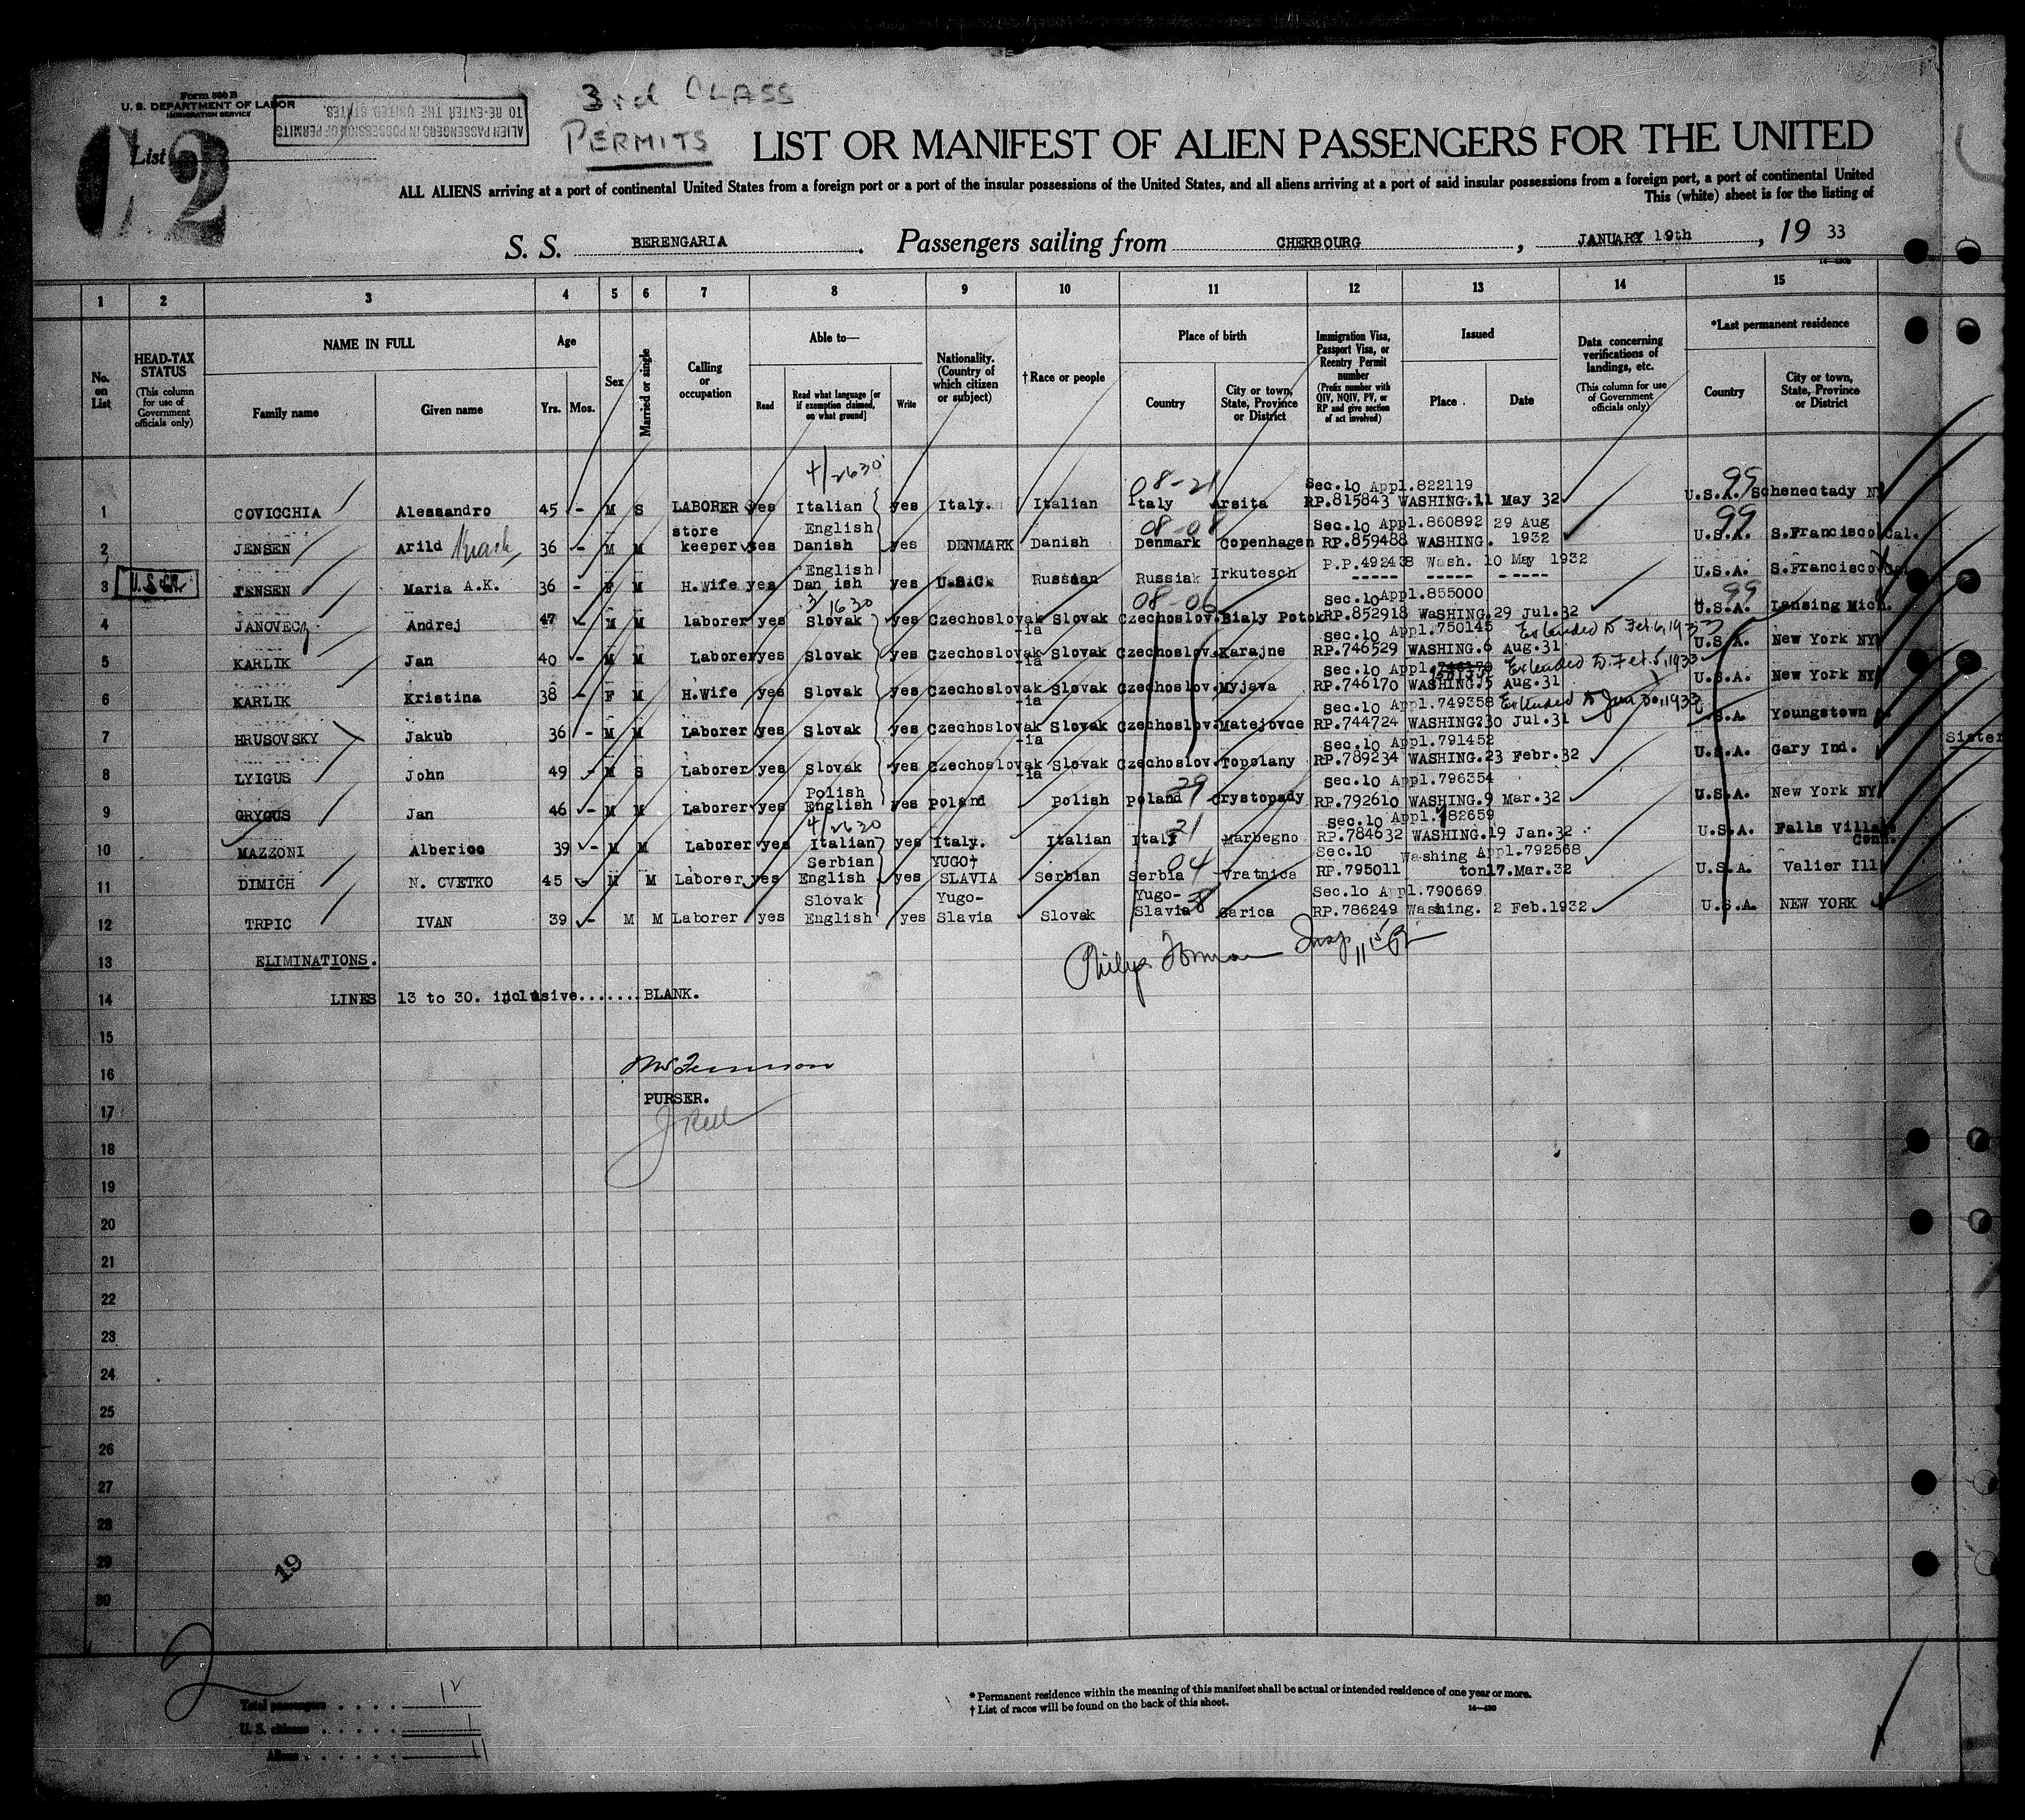 Form 500 B
U. S. DEPARTMENT OF LABOR
IMMIGRATION SERVICE
ALIEN PASSENGERS IN POSSESSION OF PERMITS
TO RE-ENTER THE UNITED STATES.
3rd CLASS
PERMITS
List 2
LIST OR MANIFEST OF ALIEN PASSENGERS FOR THE UNITED
ALL ALIENS arriving at a port of continental United States from a foreign port or a port of the insular possessions of the United States, and all aliens arriving at a port of said insular possessions from a foreign port, a port of continental United
This (white) sheet is for the listing of
S. S. BERENGARIA Passengers sailing from CHERBOURG, JANUARY 19th, 19 33
1 2 3 4 5 6 7 8 9 10 11 12 13 14 15
No. on List
HEAD-TAX STATUS (This column for use of Government officials only)
NAME IN FULL
Family name Given name
Age
Yrs. Mos.
Sex
Married or single
Calling or occupation
Able to—
Read Read what language [or if exemption claimed, on what ground] Write
Nationality. (Country of which citizen or subject)
† Race or people
Place of birth
Country City or town, State, Province or District
Immigration Visa, Passport Visa, or Reentry Permit number (Prefix number with QIV, NQIV, PV, or RP and give section of act involved)
Issued
Place Date
Data concerning verifications of landings, etc. (This column for use of Government officials only)
*Last permanent residence
Country City or town, State, Province or District
4/2630 08-21 99
Sec.10 Appl.822119
1 COVICCHIA Alessandro 45 - M S LABORER yes Italian yes Italy. Italian Italy Arsita RP.815843 WASHING.11 May 32 U.S.A. Schenectady NY
store English 08-08 Sec.10 Appl.860892 29 Aug 99
2 JENSEN Arild 36 - M M keeper yes Danish yes DENMARK Danish Denmark Copenhagen RP.859488 WASHING. 1932 U.S.A. S.Francisco Cal.
English P.P.492438 Wash. 10 May 1932
3 JENSEN Maria A.K. 36 - F M H.Wife yes Dan ish yes U.S.C. Russian Russia Irkutesch ----- ----- ----- U.S.A. S.Francisco Cal.
3/1630 08-06 Sec.10 Appl.855000 99
4 JANOVEC Andrej 47 M M laborer yes Slovak yes Czechoslovak-ia Slovak Czechoslov. Bialy Potok RP.852918 WASHING.29 Jul.32 U.S.A. Lansing Mich.
Sec.10 Appl.750145 Extended to Feb.6,1933
5 KARLIK Jan 40 - M M Laborer yes Slovak yes Czechoslovak-ia Slovak Czechoslov. Karajne RP.746529 WASHING.6 Aug.31 U.S.A. New York NY
Sec.10 Appl. Extended to Feb.5,1933
6 KARLIK Kristina 38 - F M H.Wife yes Slovak yes Czechoslovak-ia Slovak Czechoslov. Myjava RP.746170 WASHING.5 Aug.31 U.S.A. New York NY
Sec.10 Appl.749358 Extended to Jan 30,1933
7 HRUSOVSKY Jakub 36 - M M Laborer yes Slovak yes Czechoslovak-ia Slovak Czechoslov. Matejovce RP.744724 WASHING.30 Jul.31 U.S.A Youngstown
Sec.10 Appl.791452 Sister
8 LYIGUS John 49 - M S Laborer yes Slovak yes Czechoslovak-ia Slovak Czechoslov. Topolany RP.789234 WASHING.23 Febr.32 U.S.A. Gary Ind.
Polish 29 Sec.10 Appl.796354
9 GRYGUS Jan 46 - M M Laborer yes English yes Poland Polish Poland Crystopady RP.792610 WASHING.9 Mar.32 U.S.A. New York NY
4/2630 21 Sec.10 Appl.782659
10 MAZZONI Alberico 39 - M M Laborer yes Italian yes Italy. Italian Italy Marbegno RP.784632 WASHING.19 Jan.32 U.S.A. Falls Village Conn.
Serbian YUGO- 04 Sec.10 Washing Appl.792568
11 DIMICH N. CVETKO 45 - M M Laborer yes English yes SLAVIA Serbian Serbia Vratnica RP.795011 ton17.Mar.32 U.S.A. Valier Ill
Slovak Yugo- Yugo- Sec.10 Appl.790669
12 TRPIC IVAN 39 - M M Laborer yes English yes Slavia Slovak Slavia Garica RP.786249 Washing. 2 Feb.1932 U.S.A. NEW YORK
13 ELIMINATIONS.
14 LINES 13 to 30. inclusive.......BLANK.
15
16
PURSER.
17
18
19
20
21
22
23
24
25
26
27
28
29
30
19
2
Total passengers . . . . 12
U. S. citizens . . . . . 1
Aliens . . . . . . 11
* Permanent residence within the meaning of this manifest shall be actual or intended residence of one year or more.
† List of races will be found on the back of this sheet.
14—430